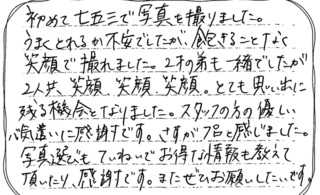 初めて七五三で写真を撮りました。
うまくとれるか不安でしたが、飽きることなく
笑顔で撮れました。2才の弟も一緒でしたが
2人共、笑顔、笑顔、笑顔。とても思い出に
残る機会となりました。スタッフの方の優しい
気遣いに感謝です。さすがプロと感じました。
写真選びもていねいでお得な情報も教えて
頂いたり、感謝です。またぜひお願いしたいです。